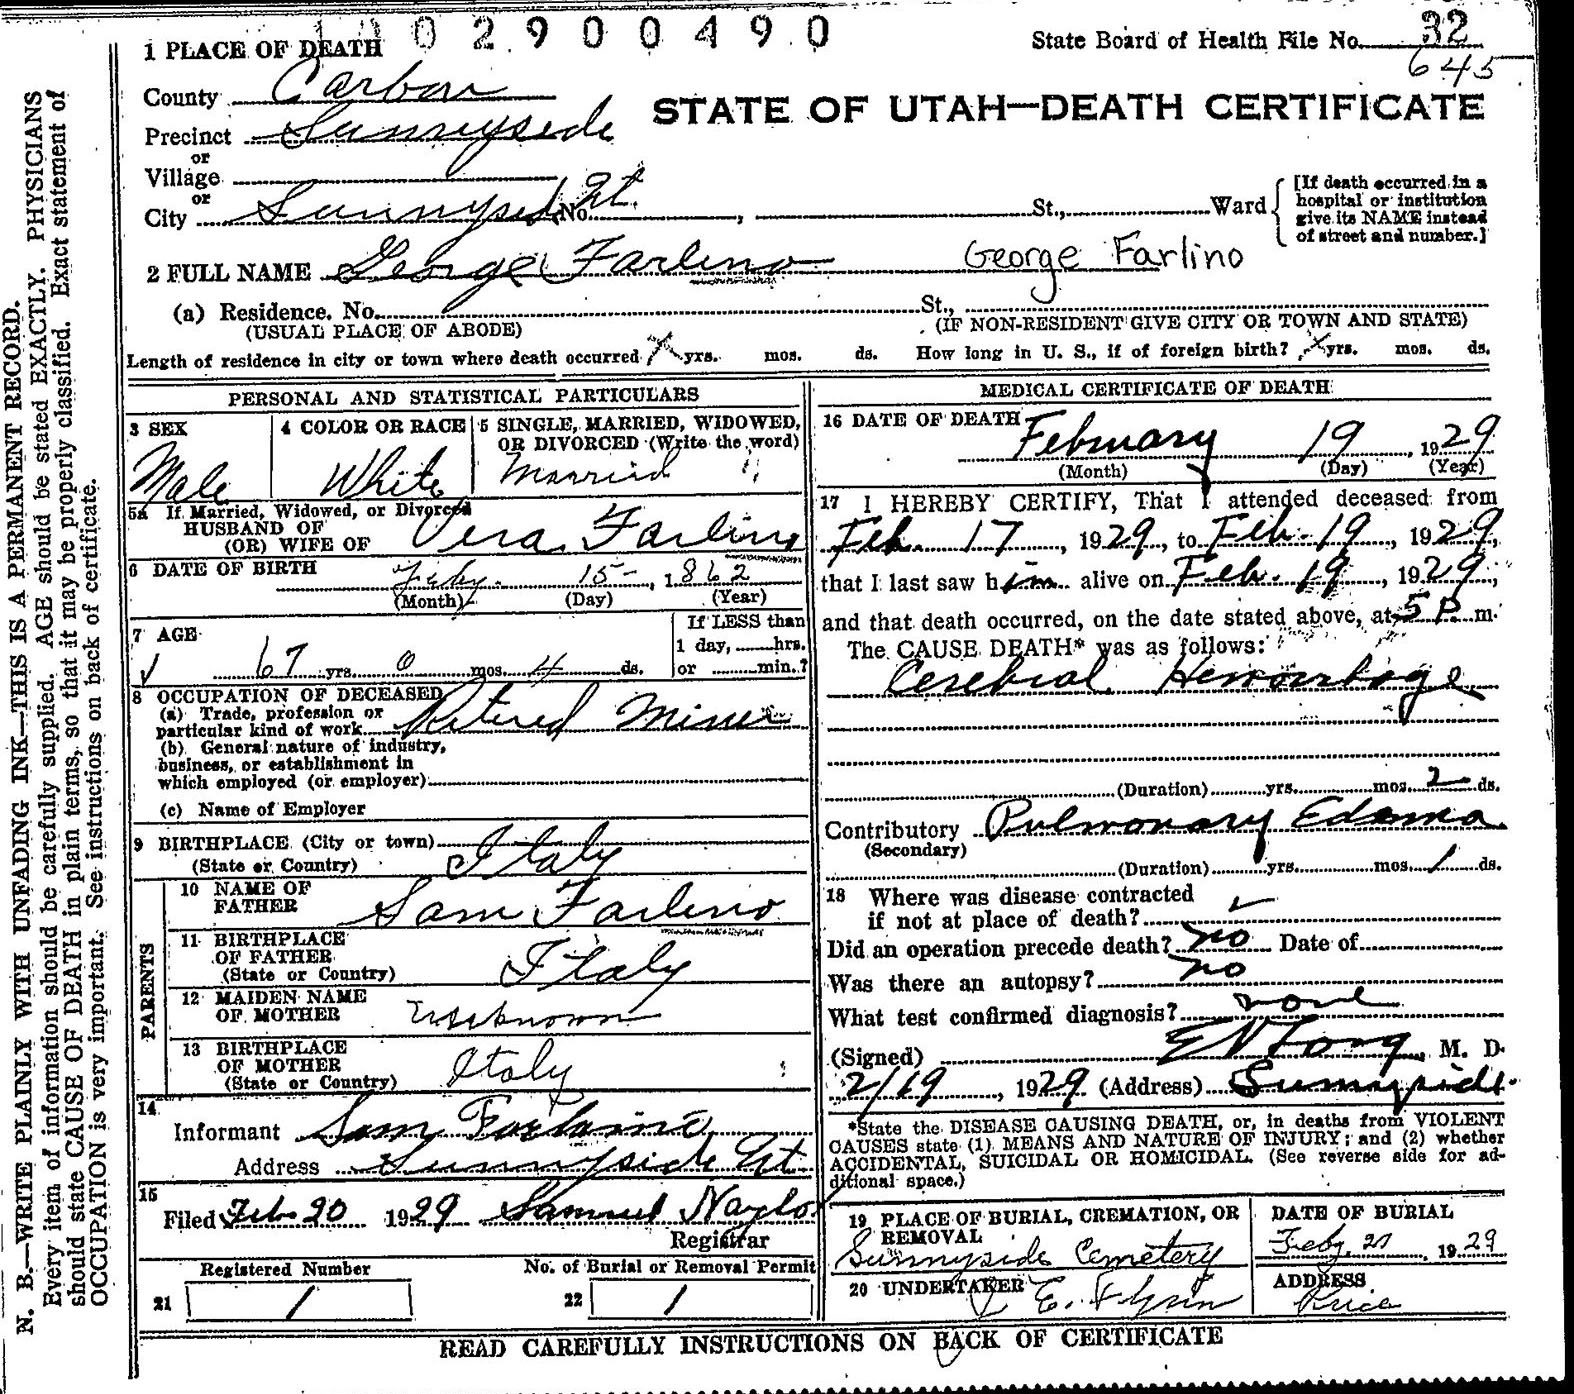 1 0 2 9 0 0 4 9 0
1 PLACE OF DEATH
State Board of Health File No. 32
645
County Carbon
STATE OF UTAH—DEATH CERTIFICATE
Precinct Sunnyside
or
Village
or
City Sunnyside No. Ut. , St., Ward
[If death occurred in a hospital or institution give its NAME instead of street and number.]
2 FULL NAME George Farlino George Farlino
(a) Residence. No. St.,
(USUAL PLACE OF ABODE) (IF NON-RESIDENT GIVE CITY OR TOWN AND STATE)
Length of residence in city or town where death occurred x yrs. mos. ds. How long in U. S., if of foreign birth? x yrs. mos. ds.
PERSONAL AND STATISTICAL PARTICULARS
3 SEX
Male
4 COLOR OR RACE
White
5 SINGLE, MARRIED, WIDOWED,
OR DIVORCED (Write the word)
Married
5a If Married, Widowed, or Divorced
HUSBAND OF
(OR) WIFE OF Vera Farlino
6 DATE OF BIRTH Feby. 15- , 1862
(Month) (Day) (Year)
7 AGE
67 yrs. 0 mos. 4 ds.
If LESS than
1 day, hrs.
or min.?
8 OCCUPATION OF DECEASED
(a) Trade, profession or
particular kind of work Retired Miner
(b) General nature of industry,
business, or establishment in
which employed (or employer)
(c) Name of Employer
9 BIRTHPLACE (City or town)
(State or Country) Italy
PARENTS
10 NAME OF
FATHER Sam Farlino
11 BIRTHPLACE
OF FATHER
(State or Country) Italy
12 MAIDEN NAME
OF MOTHER Unknown
13 BIRTHPLACE
OF MOTHER
(State or Country) Italy
14
Informant Sam Farlaino
Address Sunnyside Ut.
15
Filed Feb 20 1929 Samuel Naylor
Registrar
Registered Number
21 1
No. of Burial or Removal Permit
22 1
MEDICAL CERTIFICATE OF DEATH
16 DATE OF DEATH
February 19 , 1929
(Month) (Day) (Year)
17 I HEREBY CERTIFY, That I attended deceased from
Feb. 17 , 1929, to Feb. 19 , 1929,
that I last saw him alive on Feb. 19 , 1929,
and that death occurred, on the date stated above, at 5 P. m.
The CAUSE DEATH* was as follows:
Cerebral Hemorrhage
(Duration) yrs. mos. 2 ds.
Contributory Pulmonary Edema
(Secondary)
(Duration) yrs. mos. 1 ds.
18 Where was disease contracted
if not at place of death?
Did an operation precede death? no Date of
Was there an autopsy? no
What test confirmed diagnosis? none
(Signed) M. D.
2/19 1929 (Address) Sunnyside
*State the DISEASE CAUSING DEATH, or, in deaths from VIOLENT
CAUSES state (1) MEANS AND NATURE OF INJURY; and (2) whether
ACCIDENTAL, SUICIDAL OR HOMICIDAL. (See reverse side for ad-
ditional space.)
19 PLACE OF BURIAL, CREMATION, OR
REMOVAL
Sunnyside Cemetery
DATE OF BURIAL
Feby. 21 1929
20 UNDERTAKER
E. Flynn
ADDRESS
Price
READ CAREFULLY INSTRUCTIONS ON BACK OF CERTIFICATE
N. B.—WRITE PLAINLY WITH UNFADING INK—THIS IS A PERMANENT RECORD.
Every item of information should be carefully supplied. AGE should be stated EXACTLY. PHYSICIANS
should state CAUSE OF DEATH in plain terms, so that it may be properly classified. Exact statement of
OCCUPATION is very important. See instructions on back of certificate.